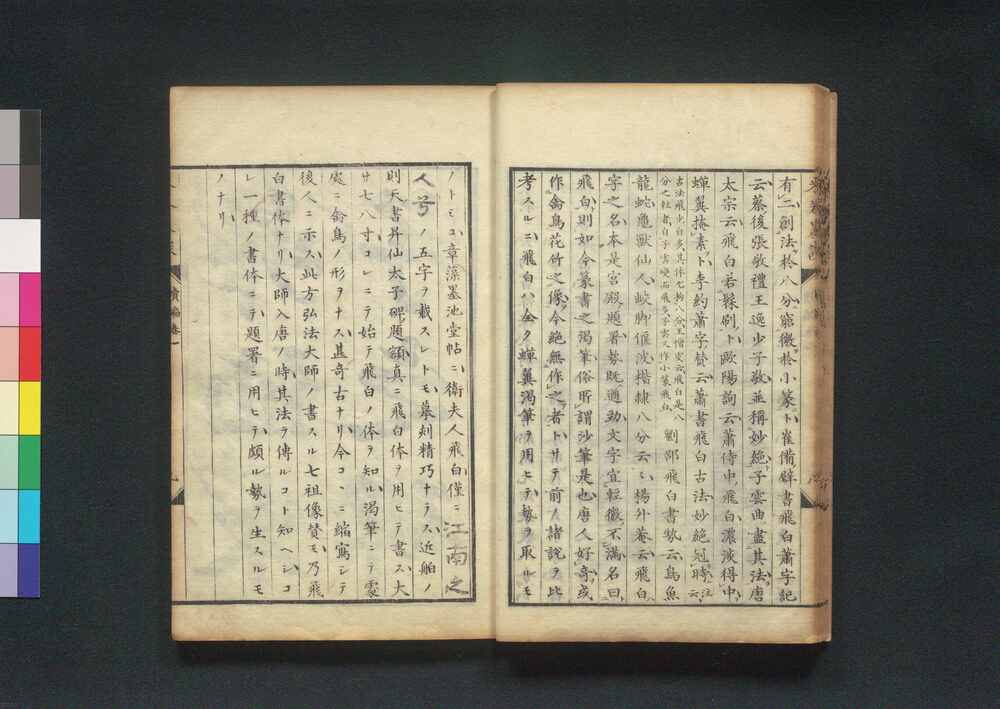 有二創法於八分窮微於小篆ト崔備壁書飛白蕭字記
云蔡後張敬禮王逸少子敬並稱妙絶子雲曲盡其法唐
太宗云飛白若縣刷ト歐陽詢云蕭侍中飛白濃淡得中
蟬翼掩素ト李約蕭字賛云蕭書飛白古法妙絶冠時注云
古法飛少白多其体尤拘八分王僧虔云飛白是八
分之軽者自子雲変而飛多子雲又作小篆飛白
劉邵飛白書勢云鳥魚
龍蛇亀獣仙人蛟脚偃波揩隷八分云〻楊外菴云飛白
字之名本是宮殿題署勢既遒勁文字宜軽微不滿名曰
飛白則如今篆書之渇筆俗所謂沙筆是也唐人好奇或
作禽鳥花竹之像今絶無作之者トサテ前ノ諸説ヲ比
考スルニ飛白ハ全ク蟬翼渇筆ヲ用ヒテ勢ヲ取ルモ
ノトミユ章藻墨池堂帖ニ衛夫人飛白僅ニ江南之
人兮ノ五字ヲ載スレトモ摹刻精巧ナラス近舶ノ
則天書昇仙太子碑題額真ニ飛白体ヲ用ヒテ書ス大
サ七八寸コレニテ始テ飛白ノ体ヲ知ル渇筆ニテ霧
處ニ禽鳥ノ形ヲナス甚奇古ナリ今コヽニ縮寫シテ
後人ニ示ス此方弘法大師ノ書スル七祖像賛モ乃飛
白書体ナリ大師入唐ノ時其法ヲ傳ルコト知ヘシコ
レ一種ノ書体ニテ題署ニ用ヒテ頗ル勢ヲ生スルモ
ノナリ